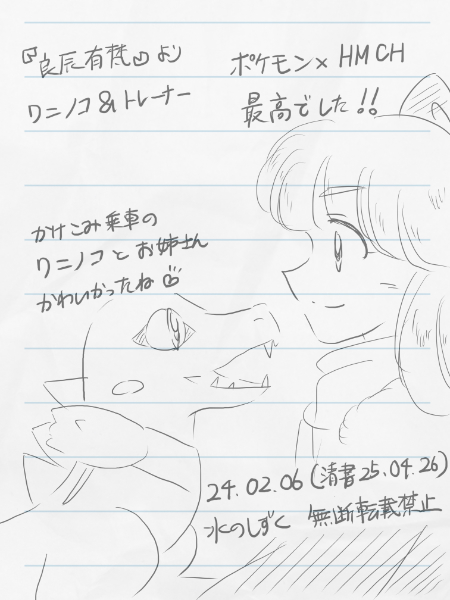 『良辰有梵』より
ワニノコ&トレーナー
ポケモン×HMCH
最高でした!!
かけこみ乗車の
ワニノコとお姉さん
かわいかったね
24.02.06(清書25.04.26)
水のしずく 無断転載禁止